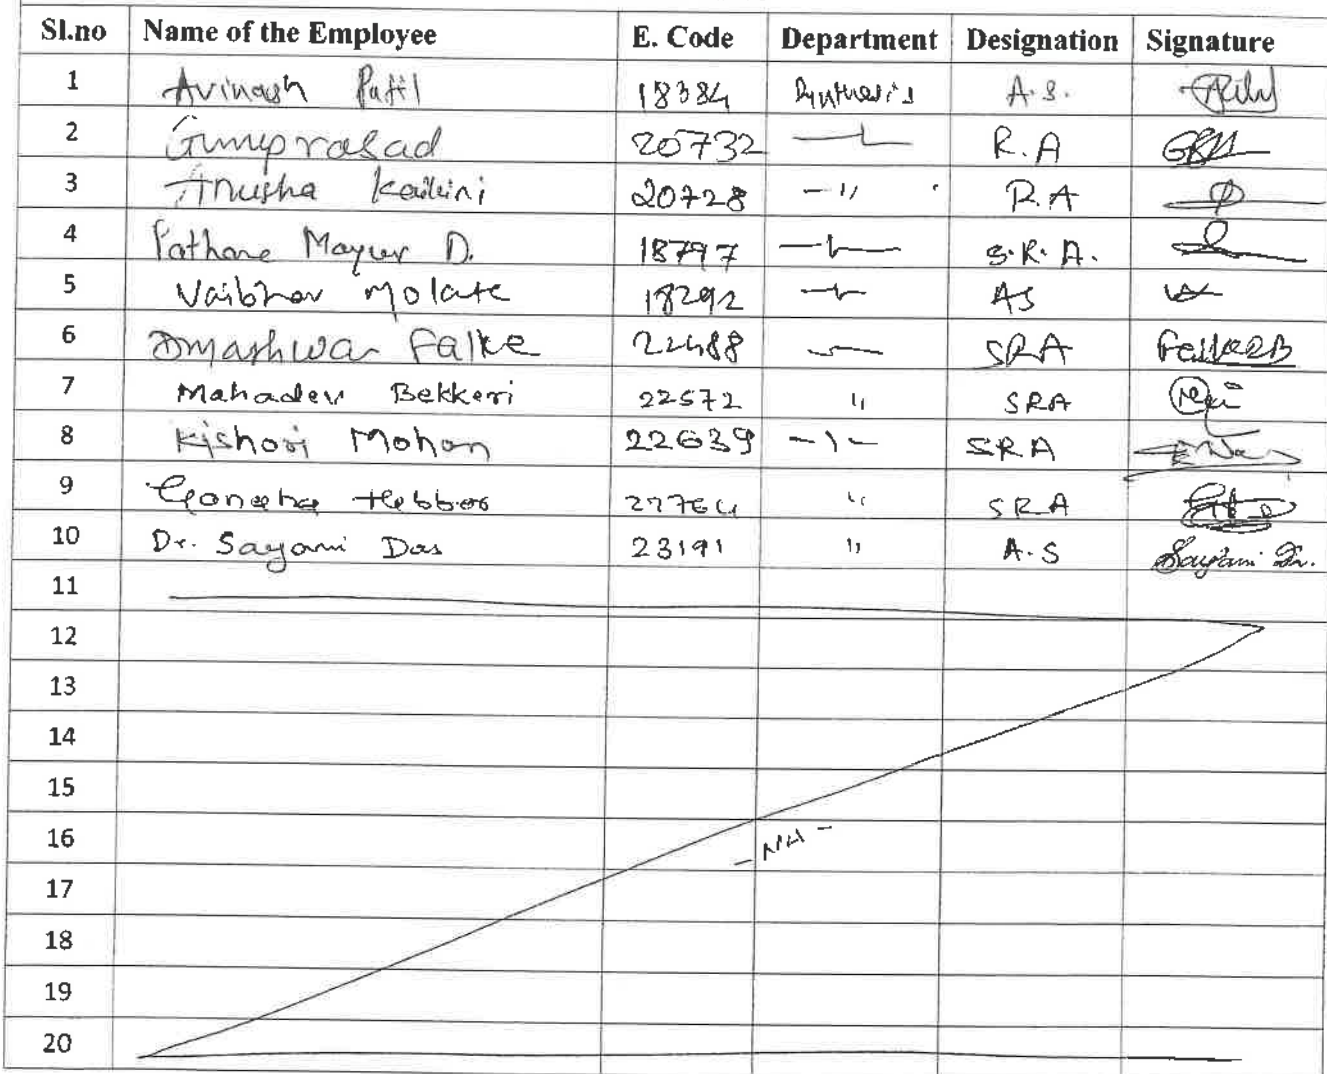 Sl.no Name of the Employee E. Code Department Designation Signature
1 Avinash Patil 18384 Synthesis A.S.
2 Guruprasad 20732 R.A
3 Anusha Kaikini 20728 -〃 R.A
4 Pathare Mayur D. 18797 S.R.A.
5 Vaibhav Molate 18292 AS
6 Falke 22488 SRA
7 Mahadev Bekkeri 22572 〃 SRA
8 Kishori Mohan 22639 SRA
9 Ganesha Hebbar 22764 〃 SRA
10 Dr. Sayani Das 23191 〃 A.S Sayani
11
12
13
14
15
16 - NA -
17
18
19
20